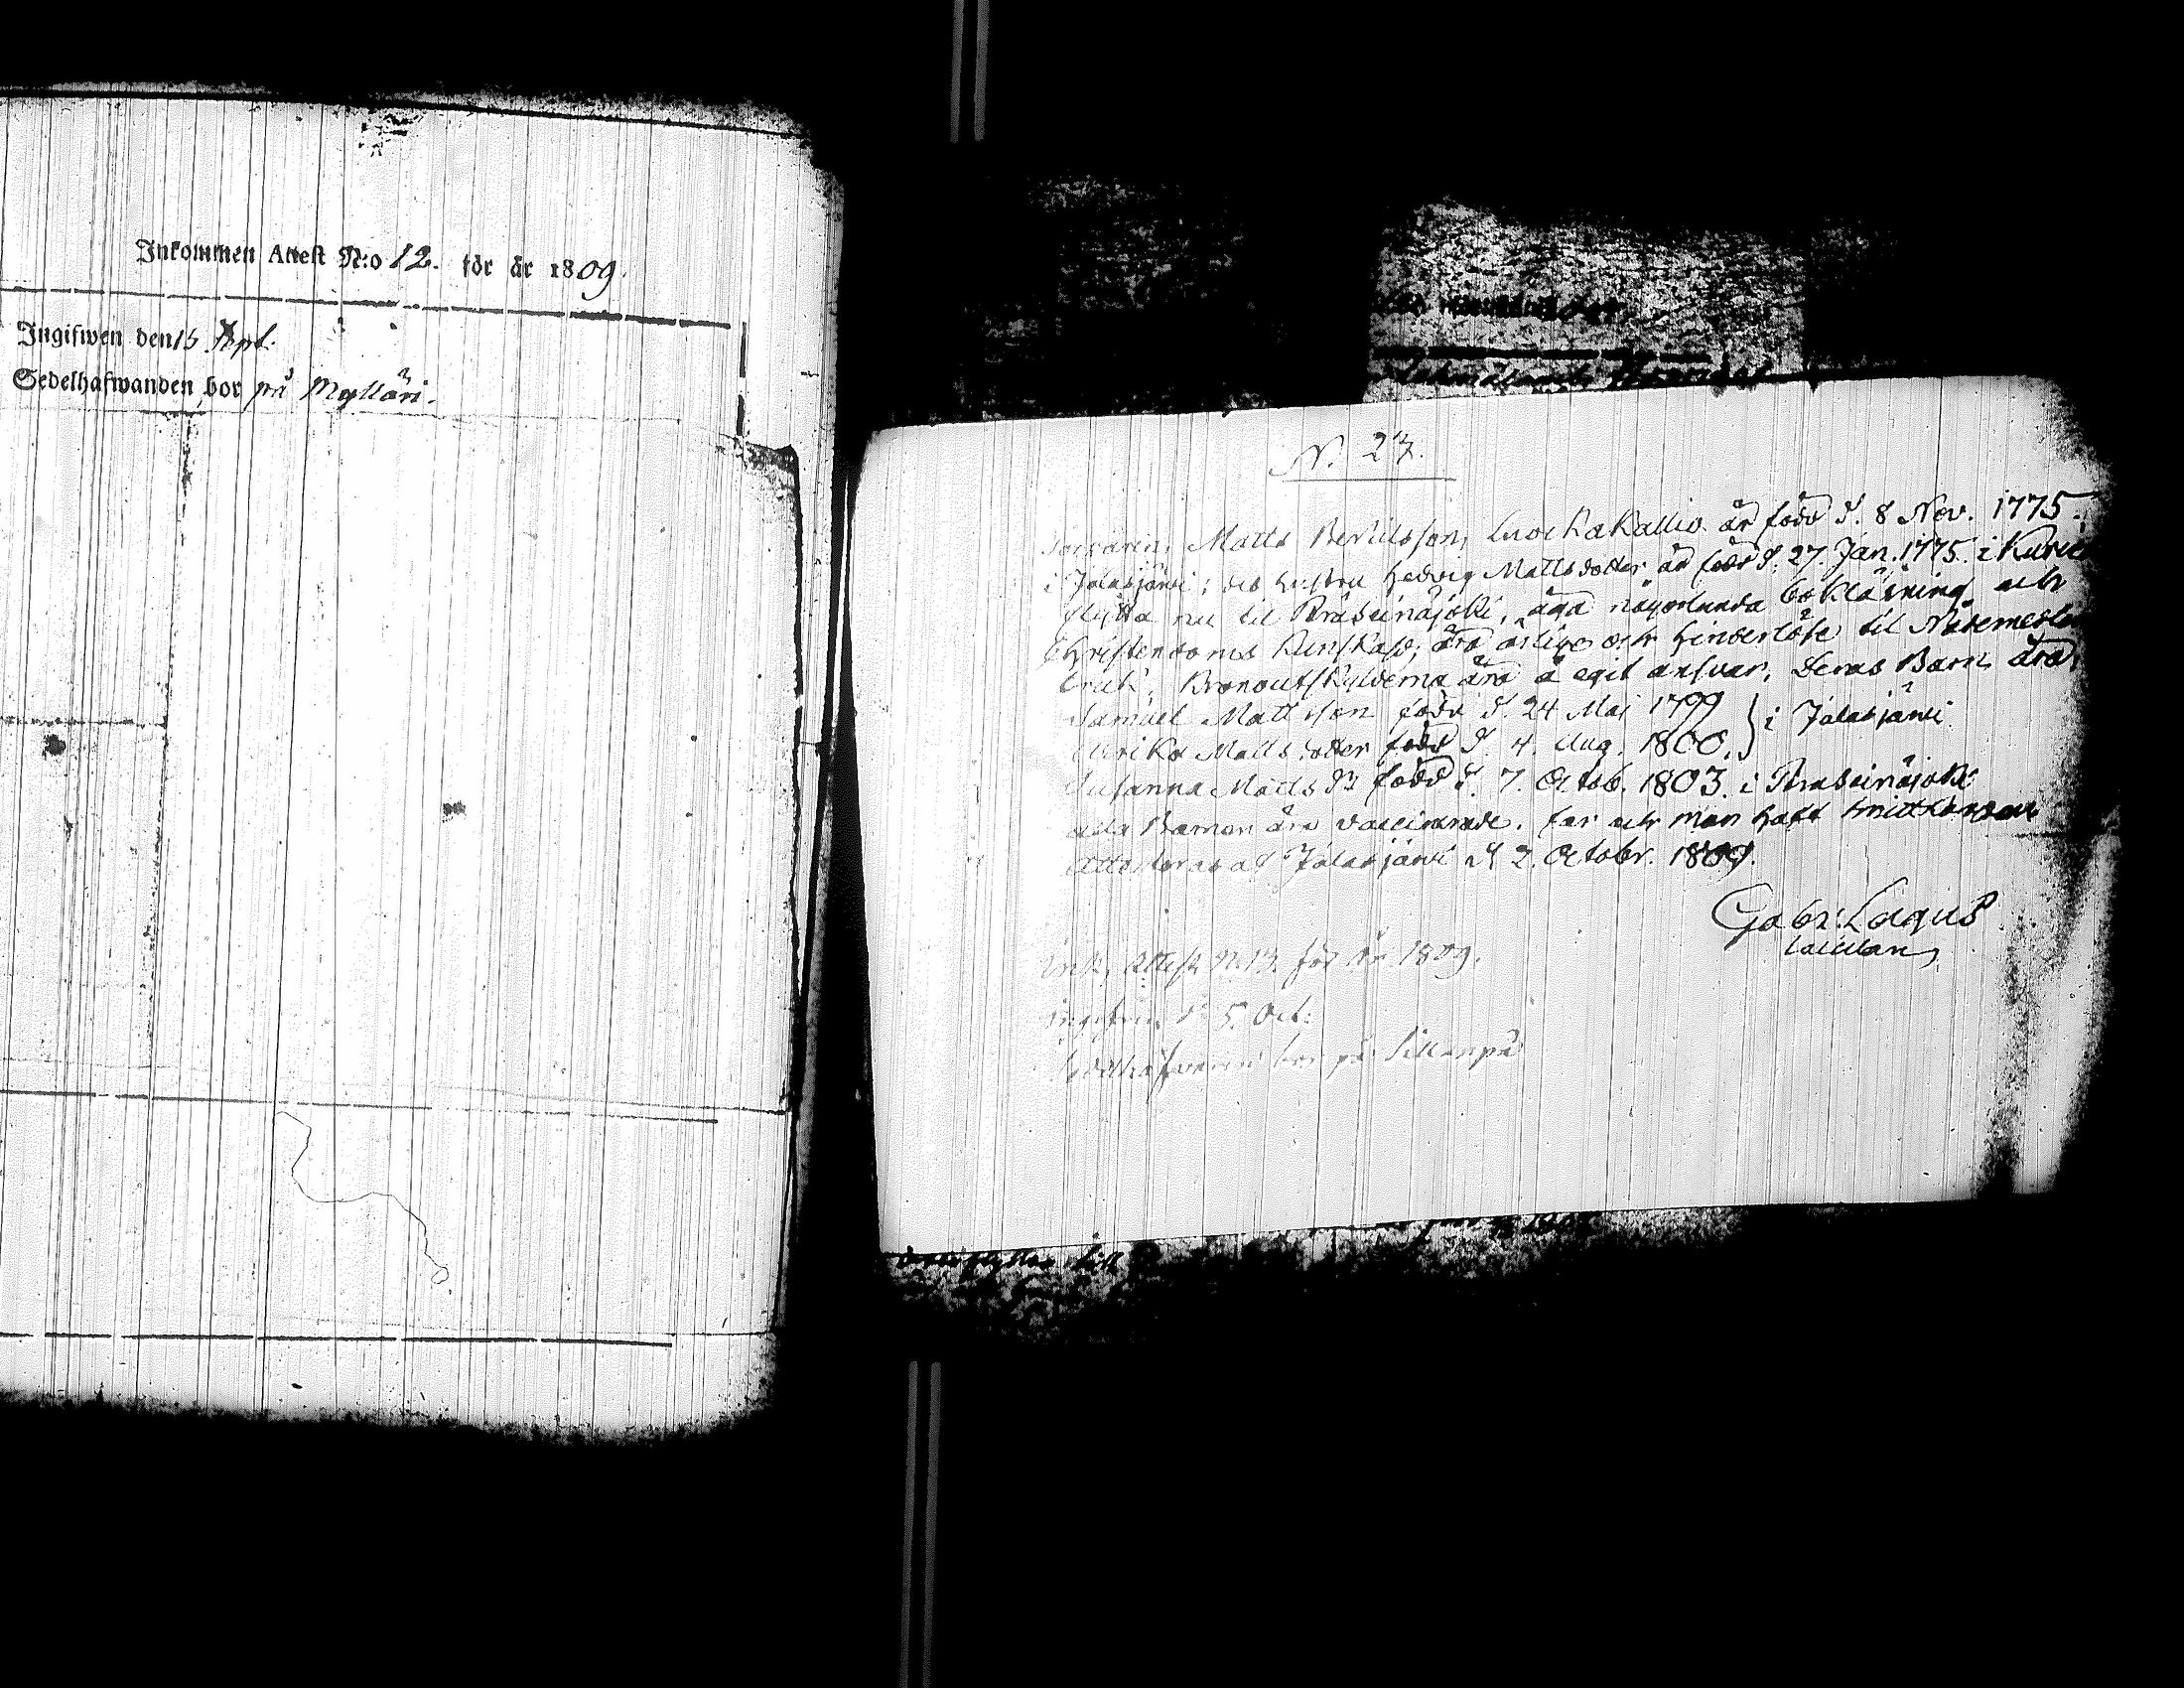 Inkommen Attest N:o 12. för år 1809.
Ingifwen den 15 Sept.
Sedelhafwanden bor på Mylläri.
N. 27.
Matts Bertilsson Luockakallio är född d. 8 Nov. 1775.
i Jalasjärvi; des hustru Hedvig Mattsdotter är född d. 27. Jan. 1775. i
flytta nu til Peräseinäjoki, äga någorlunda bokläsning och
Christendoms kunskap; äro ärlige och hinderlöse til
bruk. äro å egit ansvar. Deras Barn äro
Samuel Mattsson född d. 24 Maj 1799 } i Jalasjärvi
Ulrika Mattsdotter född d. 4. Aug. 1800.
Susanna Matts Dr född d. 7. Octob. 1803. i Peräseinäjoki
alla Barnen äro vaccinerade. far och mor haft
Attesteras af Jalasjärvi d 2. Octobr. 1809.
Gabr: Lagus
Ink. Attest N. 13. för år 1809.
Ingifven d. 5. Oct:
Sedelhafvaren bor på Sillanpä